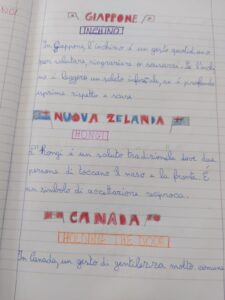 GIAPPONE
INCHINO
In Giappone, l'inchino è un gesto quotidiano
per salutare, ringraziare o scusarsi. Se l'inchi
no è leggero un saluto informale, se è profondo
esprime rispetto e scuse
NUOVA ZELANDA
HONGI
L'Hongi è un saluto tradizionale dove due
persone di toccano il naso e la fronte. È
un simbolo di accettazione reciproca.
CANADA
HOLDING THE DOOR
In Canada, un gesto di gentilezza molto comune